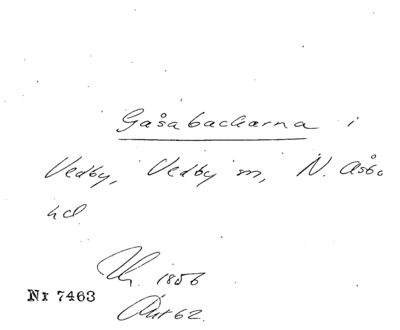 Gåsabackarna i
Vedby, Vedby sn, N. Åsbo
hd
1856
Nr 7463
62.